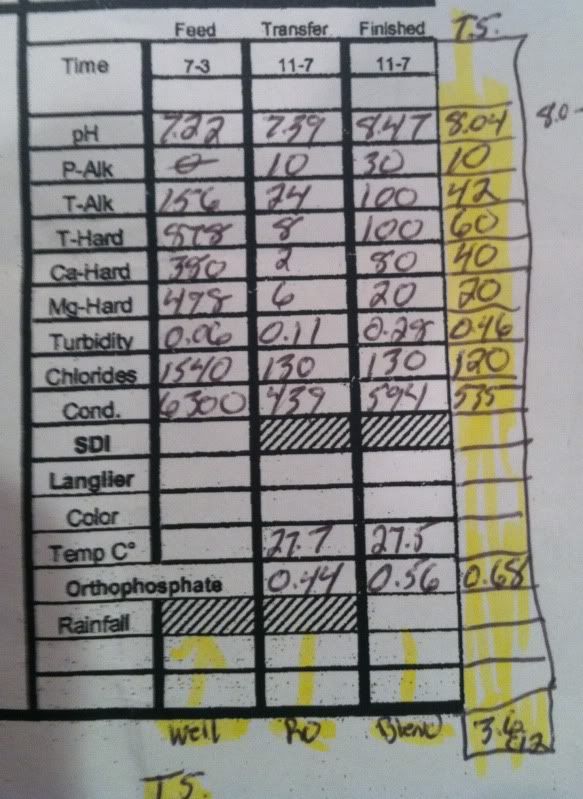 Feed Transfer Finished T.S.
Time 7-3 11-7 11-7
pH 7.22 7.39 8.47 8.04 8.0-
P-Alk 0 10 30 10
T-Alk 156 24 100 42
T-Hard 878 8 100 60
Ca-Hard 380 2 80 40
Mg-Hard 498 6 20 20
Turbidity 0.06 0.11 0.28 0.46
Chlorides 1540 130 130 120
Cond. 6300 439 594 535
SDI
Langlier
Color
Temp C° 27.7 27.5
Orthophosphate 0.44 0.56 0.68
Rainfall
Well RO Blend 3.6
Cl2
T.S.